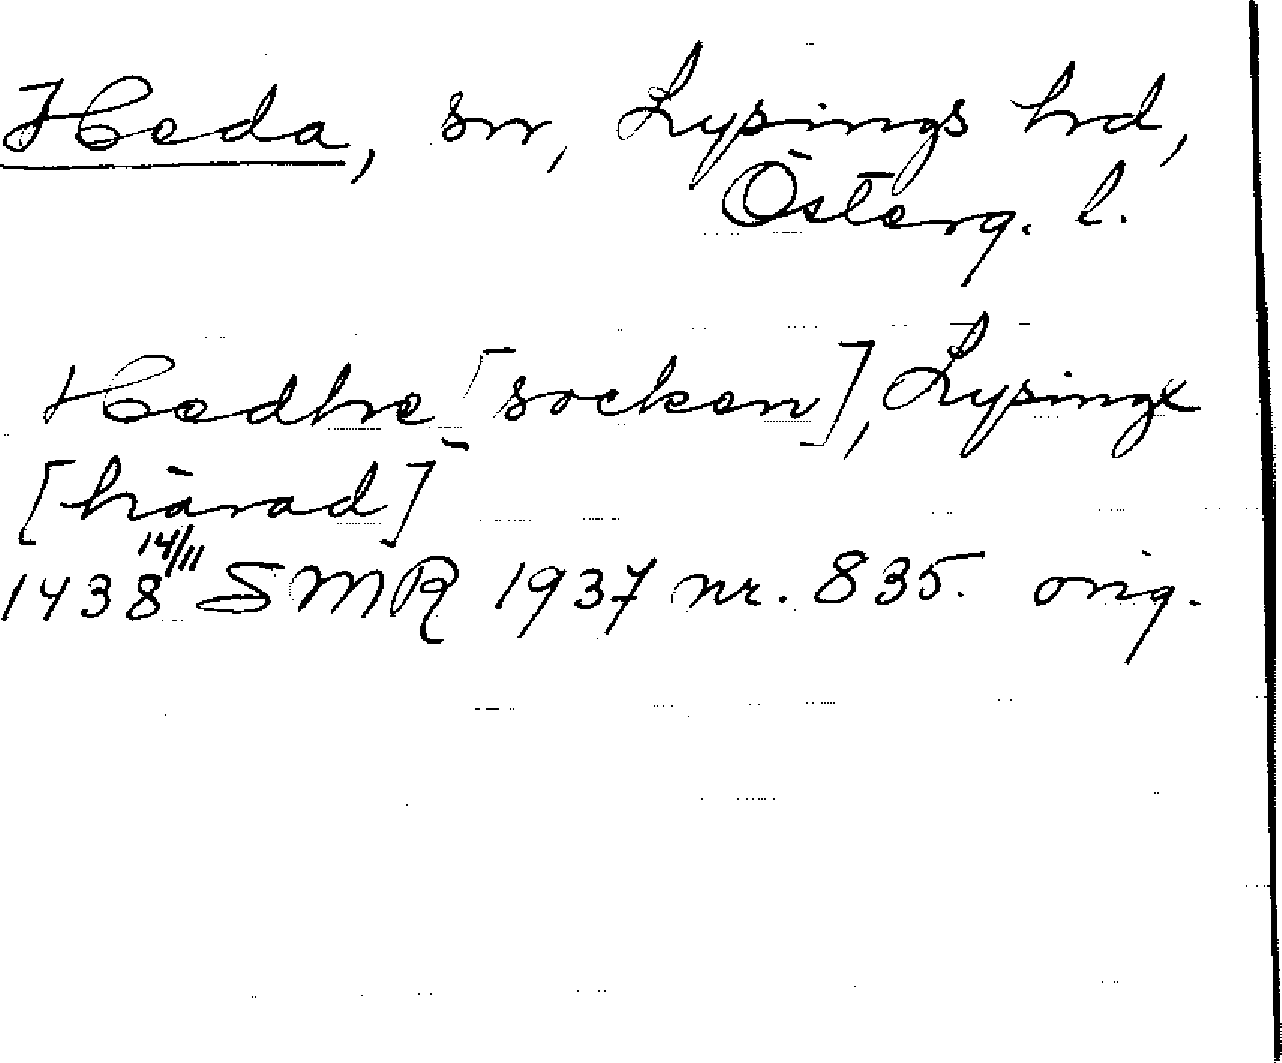 Heda, sn, Lysings hrd,
Österg. l.
Hedhe [socken], Lysingx
[härad]
1438 14/11 SMR 1937 nr. 835. orig.